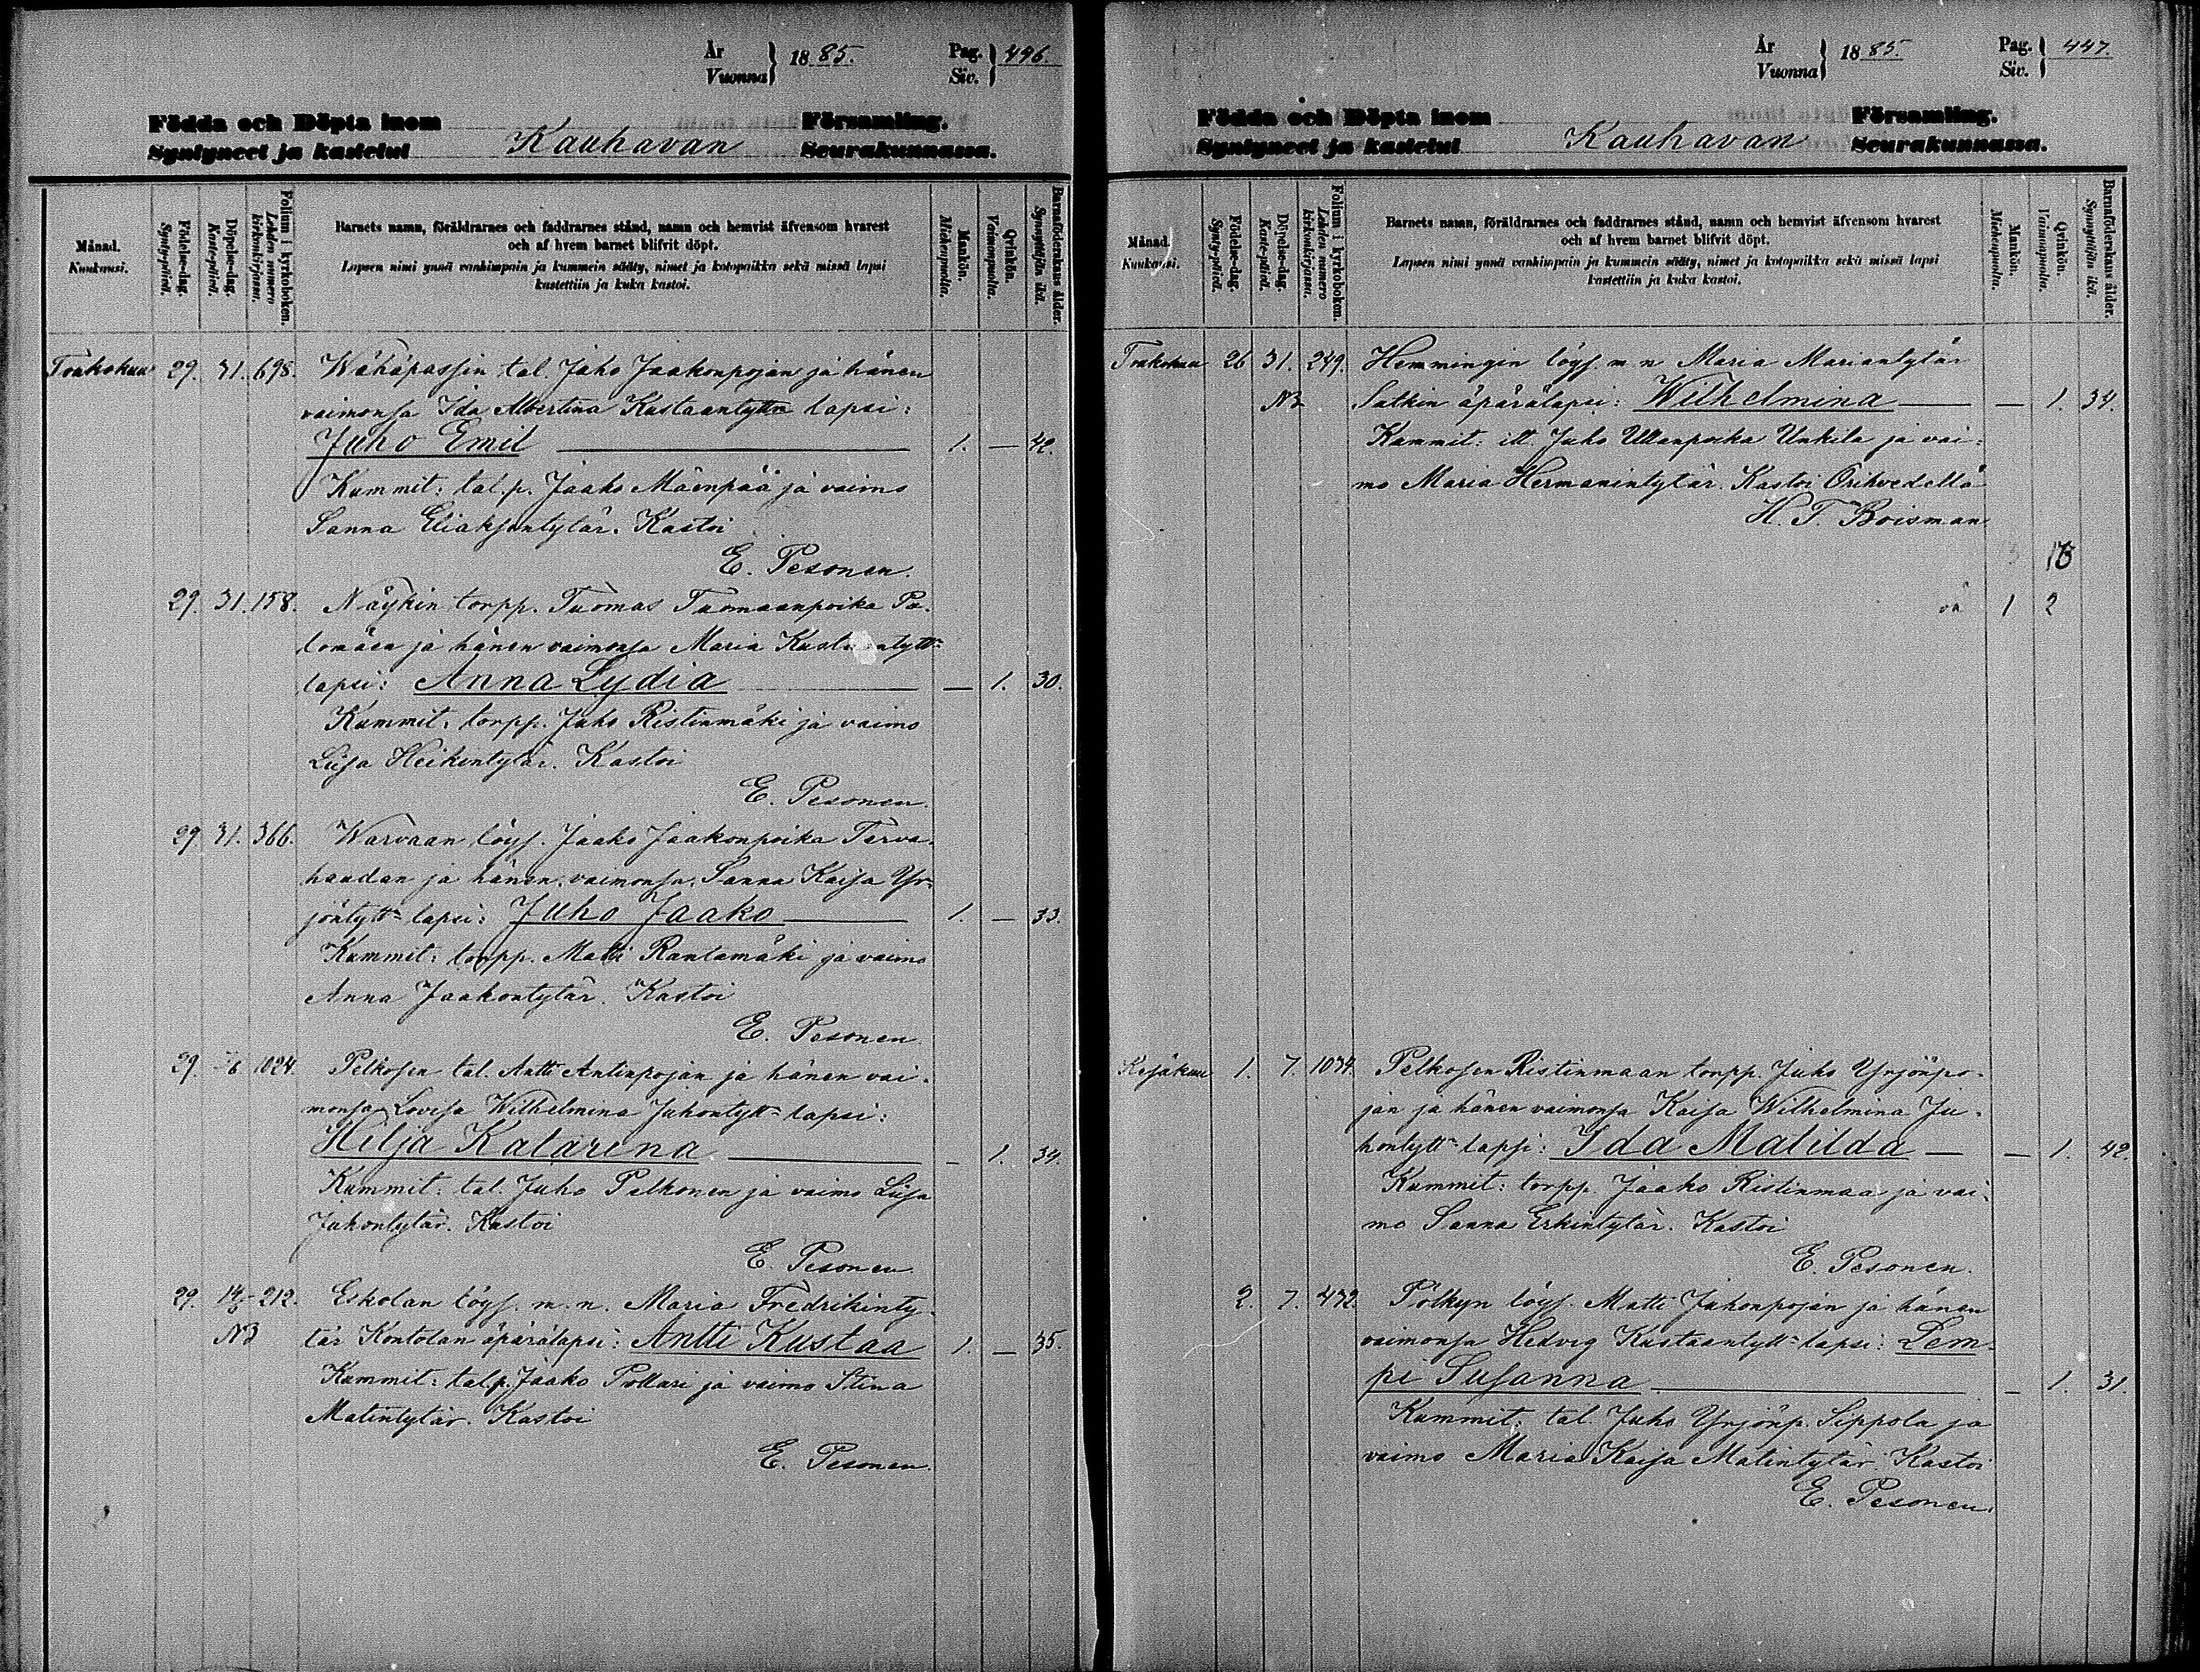 År
Vuonna
1885.
Pag.
Siv.
446.
Födda och Döpta inom
Syntyneet ja kastetut
Kauhavan
Församling.
Seurakunnassa.
Månad.
Kuukausi.
Födelse-dag.
Synty-päivä.
Döpelse-dag.
Kaste-päivä.
Folium i kyrkoboken.
Lehden numero
kirkonkirjassa.
Barnets namn, föräldrarnes och faddrarnes stånd, namn och hemvist äfvensom hvarest
och af hvem barnet blifvit döpt.
Lapsen nimi ynnä vanhimpain ja kummein sääty, nimet ja kotopaikka sekä missä lapsi
kastettiin ja kuka kastoi.
Mankön.
Miehenpuolia.
Qvinkön.
Vaimonpuolia.
Barnaföderskans ålder.
Synnyttäjän ikä.
Toukokuu 29. 31. 698. Wähäpassin tal. Juho Jaakonpojan ja hänen
vaimonsa Ida Albertina Kustaantyttn lapsi:
Juho Emil 1. — 42.
Kummit: tal.p. Jaako Mäenpää ja vaimo
Sanna Eliaksentytär. Kastoi
E. Pesonen.
29. 31. 158. Näykin torpp. Tuomas Tuomaanpoika Pa-
lomäen ja hänen vaimonsa Maria
lapsi: Anna Lydia — 1. 30.
Kummit: torpp. Juho Ristinmäki ja vaimo
Liisa Heikintytär. Kastoi
E. Pesonen.
29. 31. 366. Warvaan löys. Jaako Jaakonpoika Terva-
haudan ja hänen vaimonsa Sanna Kaisa Yr-
jöntytt- lapsi: Juho Jaako 1. — 33.
Kummit: torpp. Matti Rantamäki ja vaimo
Anna Jaakontytär. Kastoi
E. Pesonen.
29. 7/6 1024. Pelkosen tal. Antti Antinpojan ja hänen vai-
monsa Lovisa Wilhelmina Juhontytt- lapsi:
Hilja Katarina — 1. 34.
Kummit: tal. Juho Pelkonen ja vaimo Liisa
Juhontytär. Kastoi
E. Pesonen.
29. 14/6 212. Eskolan löys. m. n. Maria Fredrikinty-
NB tär Kontolan äpärälapsi: Antti Kustaa 1. — 35.
Kummit: tal.p. Jaako Pollari ja vaimo Stina
Matintytär. Kastoi
E. Pesonen.
År
Vuonna
1885.
Pag.
Siv.
447.
Födda och Döpta inom
Syntyneet ja kastetut
Kauhavan
Församling.
Seurakunnassa.
Månad.
Kuukausi.
Födelse-dag.
Synty-päivä.
Döpelse-dag.
Kaste-päivä.
Folium i kyrkoboken.
Lehden numero
kirkonkirjassa.
Barnets namn, föräldrarnes och faddrarnes stånd, namn och hemvist äfvensom hvarest
och af hvem barnet blifvit döpt.
Lapsen nimi ynnä vanhimpain ja kummein sääty, nimet ja kotopaikka sekä missä lapsi
kastettiin ja kuka kastoi.
Mankön.
Miehenpuolia.
Qvinkön.
Vaimonpuolia.
Barnaföderskans ålder.
Synnyttäjän ikä.
Toukokuu 26 31. 249. Hemmingin löys. m n Maria Mariantytär
NB Salkin äpärälapsi: Wilhelmina — 1. 34.
Kummit: itl. Juho Ullanpoika Unkila ja vai-
mo Maria Hermanintytär. Kastoi Orihvedellä
H. T. Boisman
1 2
Kesäkuu 1. 7. 1034. Pelkosen Ristinmaan torpp. Juho Yrjönpo-
jan ja hänen vaimonsa Kaisa Wilhelmina Ju-
hontytt- lapsi: Ida Matilda — — 1. 42.
Kummit: torpp. Jaako Ristinmaa ja vai-
mo Sanna Erkintytär. Kastoi
E. Pesonen.
2. 7. 432. Pölkyn löys. Matti Juhonpojan ja hänen
vaimonsa Hedvig Kustaantytt- lapsi: Lem-
pi Susanna — 1. 31.
Kummit: tal. Juho Yrjönp. Sippola ja
vaimo Maria Kaisa Matintytär. Kastoi
E. Pesonen.